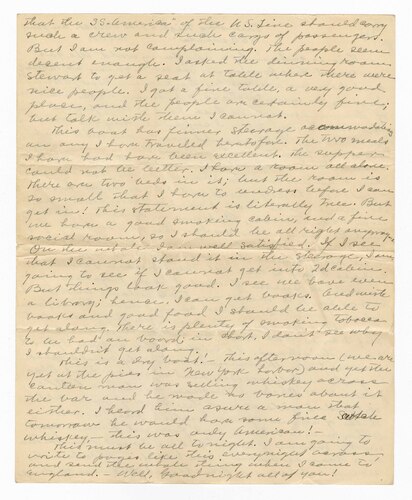 that the SS "America" of the U.S. Line should carry
such a crew and such cargo of passengers.
But I am not complaining. The people seem
decent enough. I asked the dinning room
Stewart to get a seat at table where there were
nice people. I got a fine table, a very good
place, and the people are certainly fine;
but talk with them I cannot.
This boat has finner steerage accomodations
an any I have traveled heretofore. The two meals
I have had have been excellent. The supper
could not be better. I have a room all alone.
There are two beds in it; but the room is
so small that I have to undress before I can
get in! This statement is literally true. But
we have a good smoking cabin, and a fine
social room, so I should be all right anyway.
On the whole I am well satisfied. If I see
that I cannot stand it in the steerage, I am
going to see if I cannot get into 2d cabin.
But things look good. I see we have even
a library; hence I can get books. And with
books and good food I should be able to
get along. There is plenty of smoking tobacco
to be had on board; in short, I don't see why
I shouldn't get along.
This is a dry boat! - This afternoon (we are
yet at the pier in New York harbor) and yet the
canteen man was selling whiskey across
the bar and he made no bones about it
either. I heard him assure a man that
tomorrow he would have some fine
whiskey, - this was only American! -
This must be all to-night. I am going to
write to pages like this every night across
and send the whole thing when I come to
England. - Well, Good night all of you!